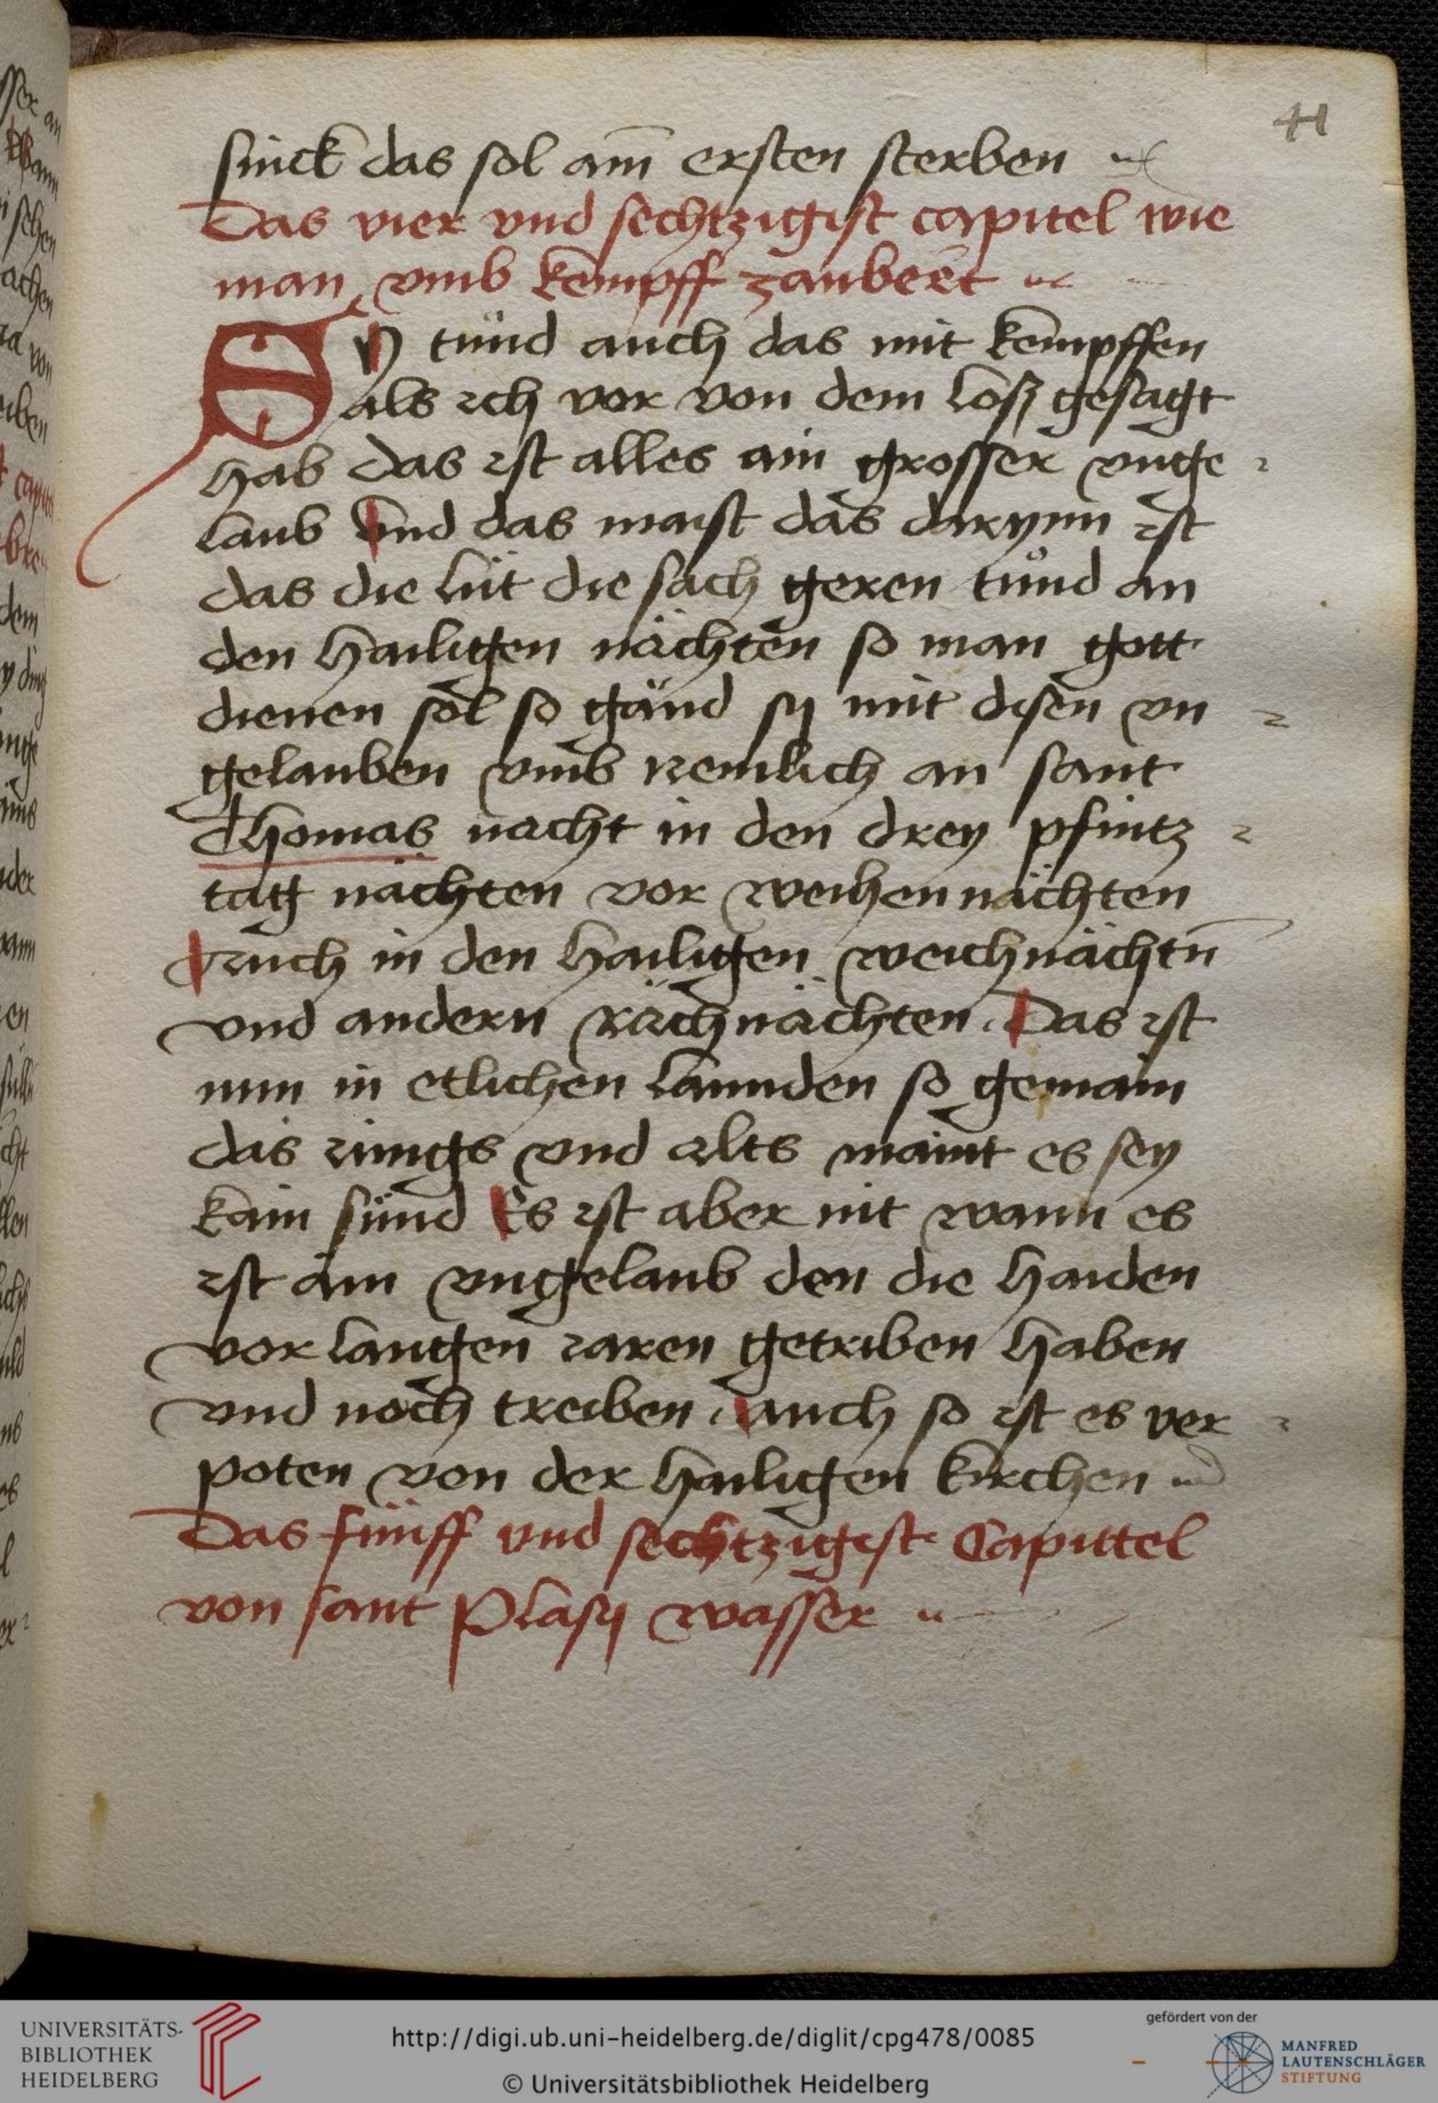 41
sinck das sol am̄ ersten sterben
Das vier vnd sechtzigist capitel wie
man vmb kempff zaubert
Sy tünd auch das mit kempffen
als ich vor von dem loß gesagt
hab das ist alles ain grosser vnge
laub vnd das maist das darynn ist
das die lüt die sach geren tůnd an
den hailigen nächten so man gott
dienen sol so gänd sy mit disen vn
gelauben vmb nemlich an sant
Thomas nacht in den drey pfintz
tag nächten vor weihennächten
Auch in den hailigen weichnächtn̄
vnd andern rächnächten Das ist
nun in etlichen lannden so gemain
das iungs vnd alts maint es sey
kain sünd Es ist aber nit wann es
ist ain vngelaub den die haiden
vor langen iaren getriben haben
vnd noch treiben auch so ist es ver
poten von der hailigen kirchen
Das fünff vnd sechtzigist Capittel
von sant Plasy wasser
UNIVERSITÄTS-
BIBLIOTHEK
HEIDELBERG
http://digi.ub.uni-heidelberg.de/diglit/cpg478/0085
© Universitätsbibliothek Heidelberg
gefördert von der
MANFRED
LAUTENSCHLÄGER
STIFTUNG